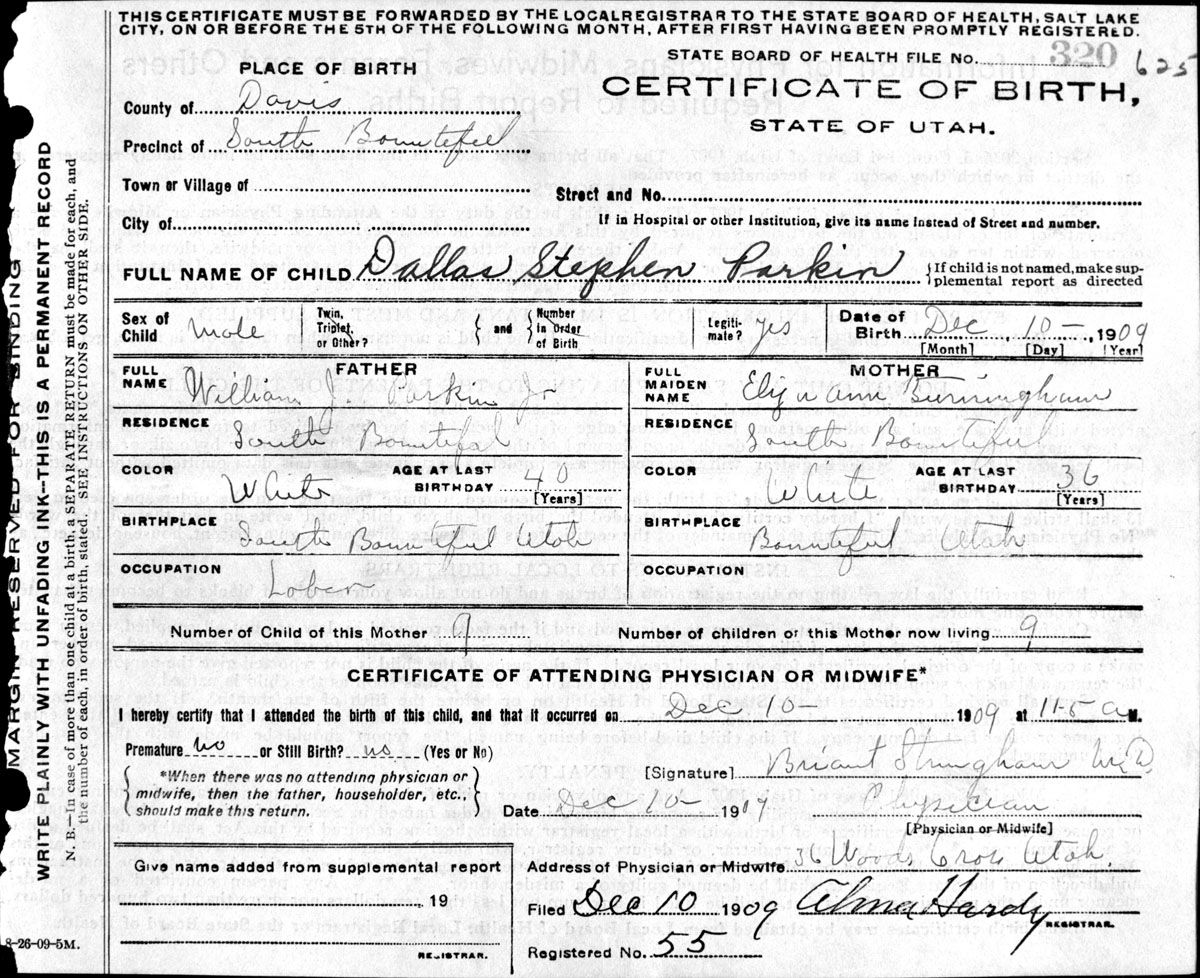 THIS CERTIFICATE MUST BE FORWARDED BY THE LOCAL REGISTRAR TO THE STATE BOARD OF HEALTH, SALT LAKE
CITY, ON OR BEFORE THE 5TH OF THE FOLLOWING MONTH, AFTER FIRST HAVING BEEN PROMPTLY REGISTERED.
STATE BOARD OF HEALTH FILE NO. 320 625
PLACE OF BIRTH
CERTIFICATE OF BIRTH,
STATE OF UTAH.
County of Davis
Precinct of South Bountiful
Town or Village of
Street and No.
City of
If in Hospital or other Institution, give name instead of Street and number.
FULL NAME OF CHILD Dallas Stephen Parkin } If child is not named, make sup-
plemental report as directed
Sex of Child male Twin, Triplet, or Other? { and } Number in Order of Birth Legiti-mate? yes Date of Birth Dec 10 1909
[Month] [Day] [Year]
FATHER MOTHER
FULL NAME William J. Parkin Jr FULL MAIDEN NAME Eliza Ann Burningham
RESIDENCE South Bountiful RESIDENCE South Bountiful
COLOR White AGE AT LAST BIRTHDAY 40 [Years] COLOR White AGE AT LAST BIRTHDAY 36 [Years]
BIRTHPLACE South Bountiful Utah BIRTHPLACE Bountiful Utah
OCCUPATION Labor OCCUPATION
Number of Child of this Mother 9 Number of children of this Mother now living 9
CERTIFICATE OF ATTENDING PHYSICIAN OR MIDWIFE*
I hereby certify that I attended the birth of this child, and that it occurred on Dec 10 1909 at M.
Premature no or Still Birth? no (Yes or No)
{ *When there was no attending physician or
midwife, then the father, householder, etc.,
should make this return. }
[Signature] Briant Stringham M.D.
Date Dec 10 1909 Physician
[Physician or Midwife]
Give name added from supplemental report
19
REGISTRAR.
Address of Physician or Midwife Woods Cross Utah
Filed Dec 10 1909 Alma Hardy
REGISTRAR.
Registered No. 55
8-26-09-5M.
MARGIN RESERVED FOR BINDING
WRITE PLAINLY WITH UNFADING INK—THIS IS A PERMANENT RECORD
N. B.—In case of more than one child at a birth, a SEPARATE RETURN must be made for each, and
the number of each, in order of birth, stated. SEE INSTRUCTIONS ON OTHER SIDE.